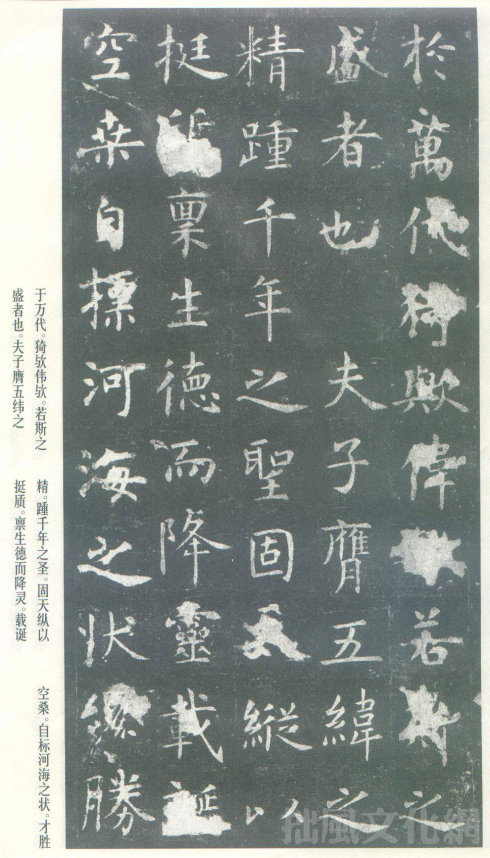 於萬代猗歟偉若斯之
盛者也 夫子膺五緯之
精踵千年之聖固天縱以
挺質禀生德而降靈載誕
空桑自標河海之状纔勝
于万代。猗欤伟欤。若斯之
盛者也。夫子膺五纬之
精。踵千年之圣。固天纵以
挺质。禀生德而降灵。载诞
空桑。自标河海之状。才胜
拙風文化網